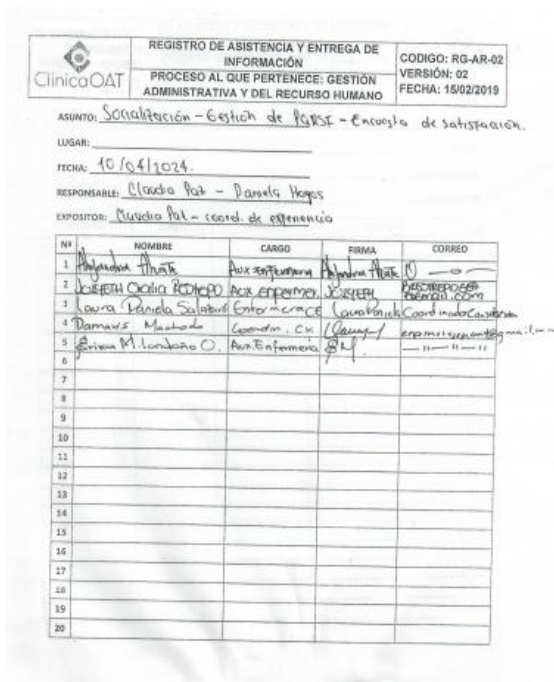 ClinicaOAT
REGISTRO DE ASISTENCIA Y ENTREGA DE
INFORMACIÓN
PROCESO AL QUE PERTENECE: GESTIÓN
ADMINISTRATIVA Y DEL RECURSO HUMANO
CODIGO: RG-AR-02
VERSIÓN: 02
FECHA: 15/02/2019
ASUNTO: Socialización - Gestión de PQRSF - Encuesta de satisfacción.
LUGAR:
FECHA: 10/04/2024.
RESPONSABLE: Claudia Paz - Daniela Hoyos
EXPOSITOR: Claudia Paz - coord. de experiencia
Nº NOMBRE CARGO FIRMA CORREO
1 Alejandra Aux enfermera Alejandra
2 Aux enfermer
3 Laura Daniela Enfermera CE Laura Daniela
4 Damaris Machado Coordin. Cx
5 M. Londoño O. Aux. Enfermeria
6
7
8
9
10
11
12
13
14
15
16
17
18
19
20